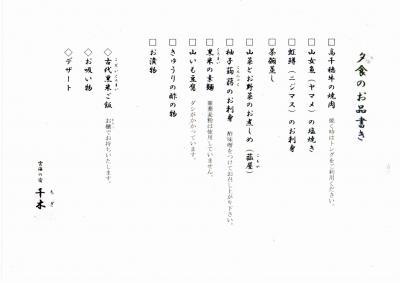 夕食のお品書き
□高千穂牛の焼肉 焼く時はトングをご利用ください。
□山女魚（ヤマメ）の塩焼き
□虹鱒（ニジマス）のお刺身
□茶碗蒸し
□山菜とお野菜のお煮しめ（菰屋）
□柚子蒟蒻のお刺身 酢味噌をつけてお召し上がり下さい。
□黒米の素麺 蕎麦粉は使用していません。
□山いも豆腐 ダシがかかっています。
□きゅうりの酢の物
□お漬物
◇古代黒米ご飯 お櫃でお持ちいたします。
◇お吸い物
◇デザート
雲海の宿 千木